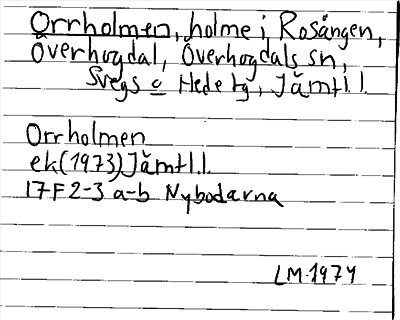 Orrholmen, holme i Rosången,
Överhogdal, Överhogdals sn,
Svegs o Hede tg, Jämtl l.
Orrholmen
ek (1973) Jämtl. l.
17F 2-3 a-b Nybodarna
LM 1974